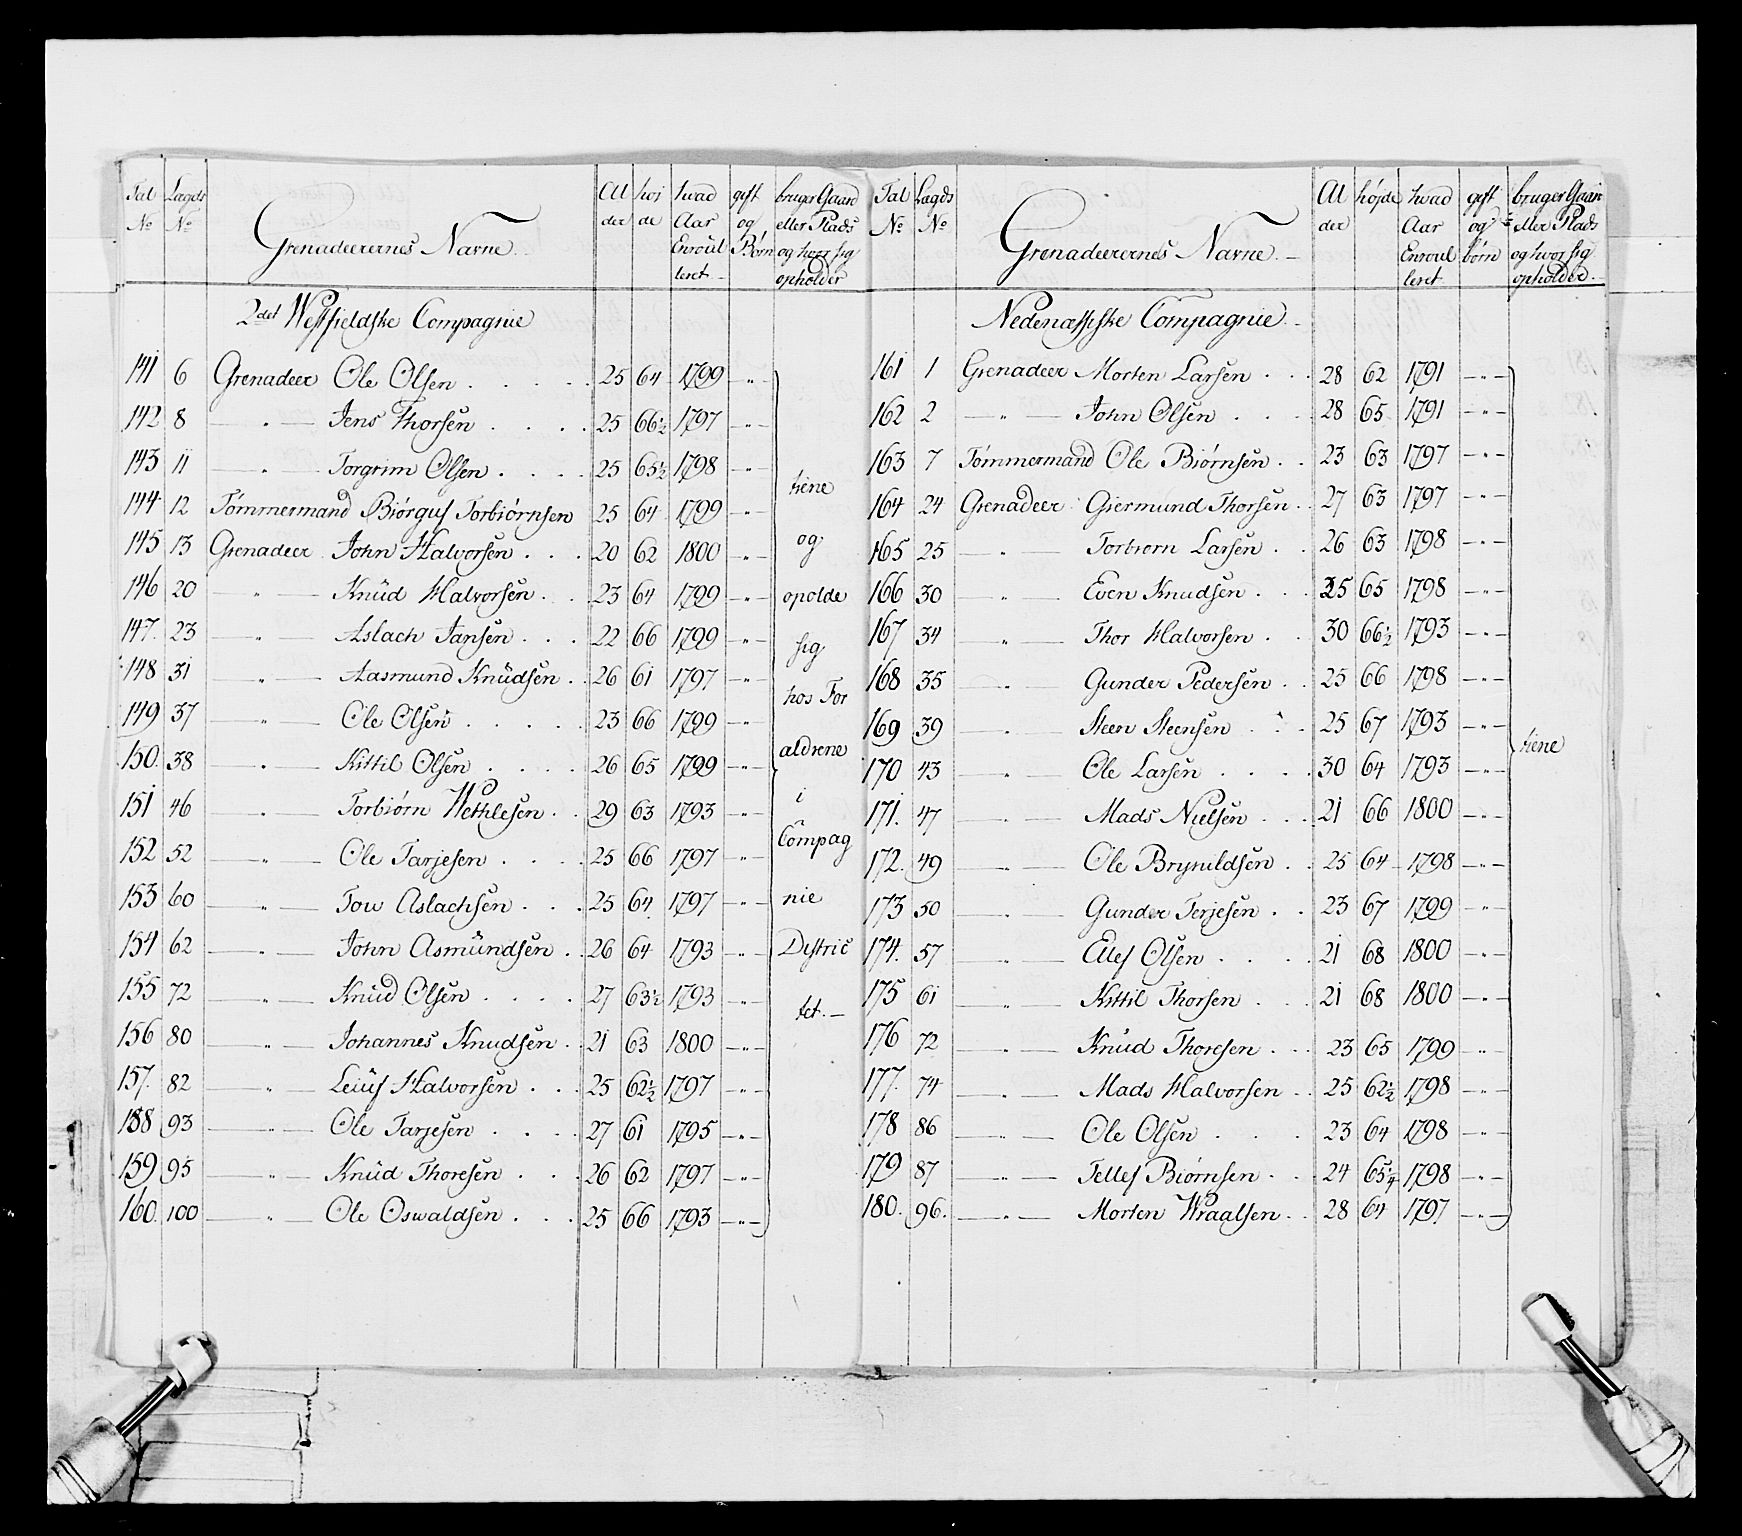 Tal Lagds Al høi hvad gift bruger Gaard
No No Grenadeerernes Navne der de Aar og eller Plads
Enroul Børn og hvor sig
leret opholder
2det Westfieldske Compagnie
141 6 Grenadeer Ole Olsen 25 64 1799 -"-
142 8 -"- Jens Thorsen 25 66½ 1797 -"-
143 11 -"- Torgrim Olsen 25 65½ 1798 -"-
144 12 Tømmermand Biørguf Torbiørnsen 25 64 1799 -"-
145 13 Grenadeer John Halvorsen 20 62 1800 -"-
146 20 -"- Knüd Halvorsen 23 64 1799 -"-
147. 23 -"- Aslach Jansen 22 66 1799 -"-
148 31 -"- Aasmund Knüdsen 26 61 1797 -"-
149 37 -"- Ole Olsen 23 66 1799 -"-
150. 38 -"- Kittil Olsen 26 65 1799 -"-
151 46 -"- Torbiørn Wethlesen 29 63 1793 -"-
152 52 -"- Ole Tarjesen 25 66 1797 -"-
153 60 -"- Tow Aslachsen 25 64 1797 -"-
154 62 -"- John Asmündsen 26 64 1793 -"-
155 72 -"- Knüd Olsen 27 63½ 1793 -"-
156 80 -"- Johannes Knudsen 21 63 1800 -"-
157. 82 -"- Leiüf Halvorsen 25 62½ 1797 -"-
158 93 -"- Ole Tarjesen 27 61 1795 -"-
159 95 -"- Knüd Thoresen 26 62 1797 -"-
160. 100 -"- Ole Oswaldsen 25 66 1793 -"-
tiene
og
opolde
sig
hos For
aldrene
i
Compag
nie
Distric
tet.-
Tal Lægds Al højde hvad gift bruger Gaar
No No Grenadeerernes Navne der Aar og eller Plads
Enroul børn og hvor sig
leret opholder.
Nedenæssiske Compagnie
161 1 Grenadeer Morten Larsen 28 62 1791 -"-
162 2 -"- John Olsen 28 65 1791 -"-
163 7 Tømmermand Ole Biørnsen 23 63 1797 -"-
164 24 Grenadeer Giermund Thorsen 27 63 1797 -"-
165 25 -"- Torbiorn Larsen 26 63 1798 -"-
166 30 -"- Even Knudsen 25 65 1798 -"-
167 34 -"- Thor Halvorsen 30 66½ 1793 -"-
168 35 -"- Gunder Pedersen 25 66 1798 -"-
169 39 -"- Steen Steensen 25 67 1793 -"-
170 43 -"- Ole Larsen 30 64 1793 -"-
171. 47 -"- Mads Nielsen 21 66 1800 -"-
172. 49 -"- Ole Brynildsen 25 64 1798 -"-
173 50 -"- Gunder Terjesen 23 67 1799 -"-
174. 57 -"- Ellef Olsen 21 68 1800 -"-
175 61 -"- Kittil Thorsen 21 68 1800 -"-
176 72 -"- Knüd Thoresen 23 65 1799 -"-
177. 74 -"- Mads Halvorsen 25 62½ 1798 -"-
178 86 -"- Ole Olsen 23 64 1798 -"-
179 87 -"- Tellef Biørnsen 24 65¼ 1798 -"-
180. 96. -"- Morten Wraalsen 28 64 1797 -"-
tiene